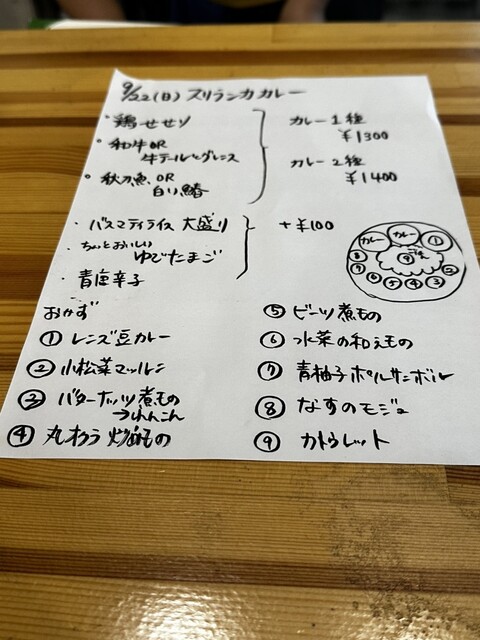 9/22(日) スリランカカレー
・鶏せせり
・和牛OR
牛テールとグレンス
・秋刀魚 OR
白り鰆
カレー1種
¥1300
カレー2種
¥1400
・バスマティライス 大盛り
・ちょっとおいしい
ゆでたまご
・青唐辛子
+¥100
カレー
カレー
①
⑨
⑧
⑦
⑥
⑤
④
③
②
おかず
① レンズ豆カレー
② 小松菜マッルン
③ バターナッツ煮もの
→れんこん
④ 丸オクラ 炒めもの
⑤ ビーツ煮もの
⑥ 水菜の和えもの
⑦ 青柚子ポルサンボル
⑧ なすのモジュ
⑨ カトゥレット